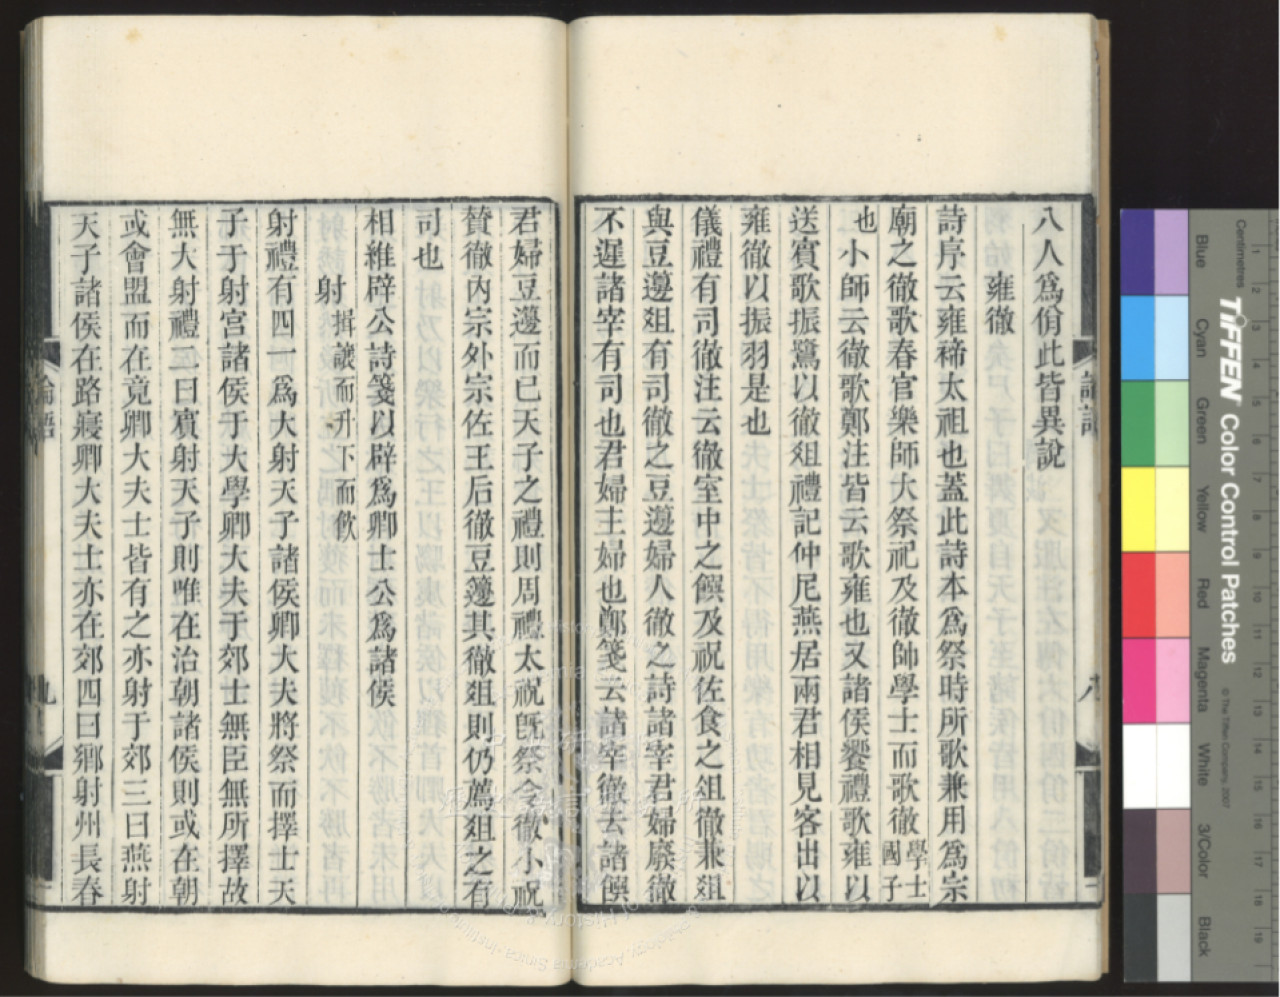 八人爲佾此皆異說
雍徹
詩序云雍禘太祖也蓋此詩本爲祭時所歌兼用爲宗
廟之徹歌春官樂師大祭祀及徹帥學士而歌徹學士國子
也小師云徹歌鄭注皆云歌雍也又諸侯饗禮歌雍以
送賓歌振鷺以徹俎禮記仲尼燕居兩君相見客出以
雍徹以振羽是也
儀禮有司徹注云徹室中之饌及祝佐食之俎徹兼俎
與豆籩俎有司徹之豆籩婦人徹之詩諸宰君婦廢徹
不遲諸宰有司也君婦主婦也鄭箋云諸宰徹去諸饌
君婦豆籩而已天子之禮則周禮太祝旣祭令徹小祝
贊徹內宗外宗佐王后徹豆籩其徹俎則仍薦俎之有
司也
相維辟公詩箋以辟爲卿士公爲諸侯
射 揖讓而升下而飲
射禮有四一爲大射天子諸侯卿大夫將祭而擇士天
子于射宮諸侯于大學卿大夫于郊士無臣無所擇故
無大射禮二曰賓射天子則唯在治朝諸侯則或在朝
或會盟而在竟卿大夫士皆有之亦射于郊三曰燕射
天子諸侯在路寢卿大夫士亦在郊四曰鄉射州長春
論語
八
論語
九
Centimetres
TIFFEN Color Control Patches
© The Tiffen Company, 2007
Blue
Cyan
Green
Yellow
Red
Magenta
White
3/Color
Black
1 2 3 4 5 6 7 8 9 10 11 12 13 14 15 16 17 18 19